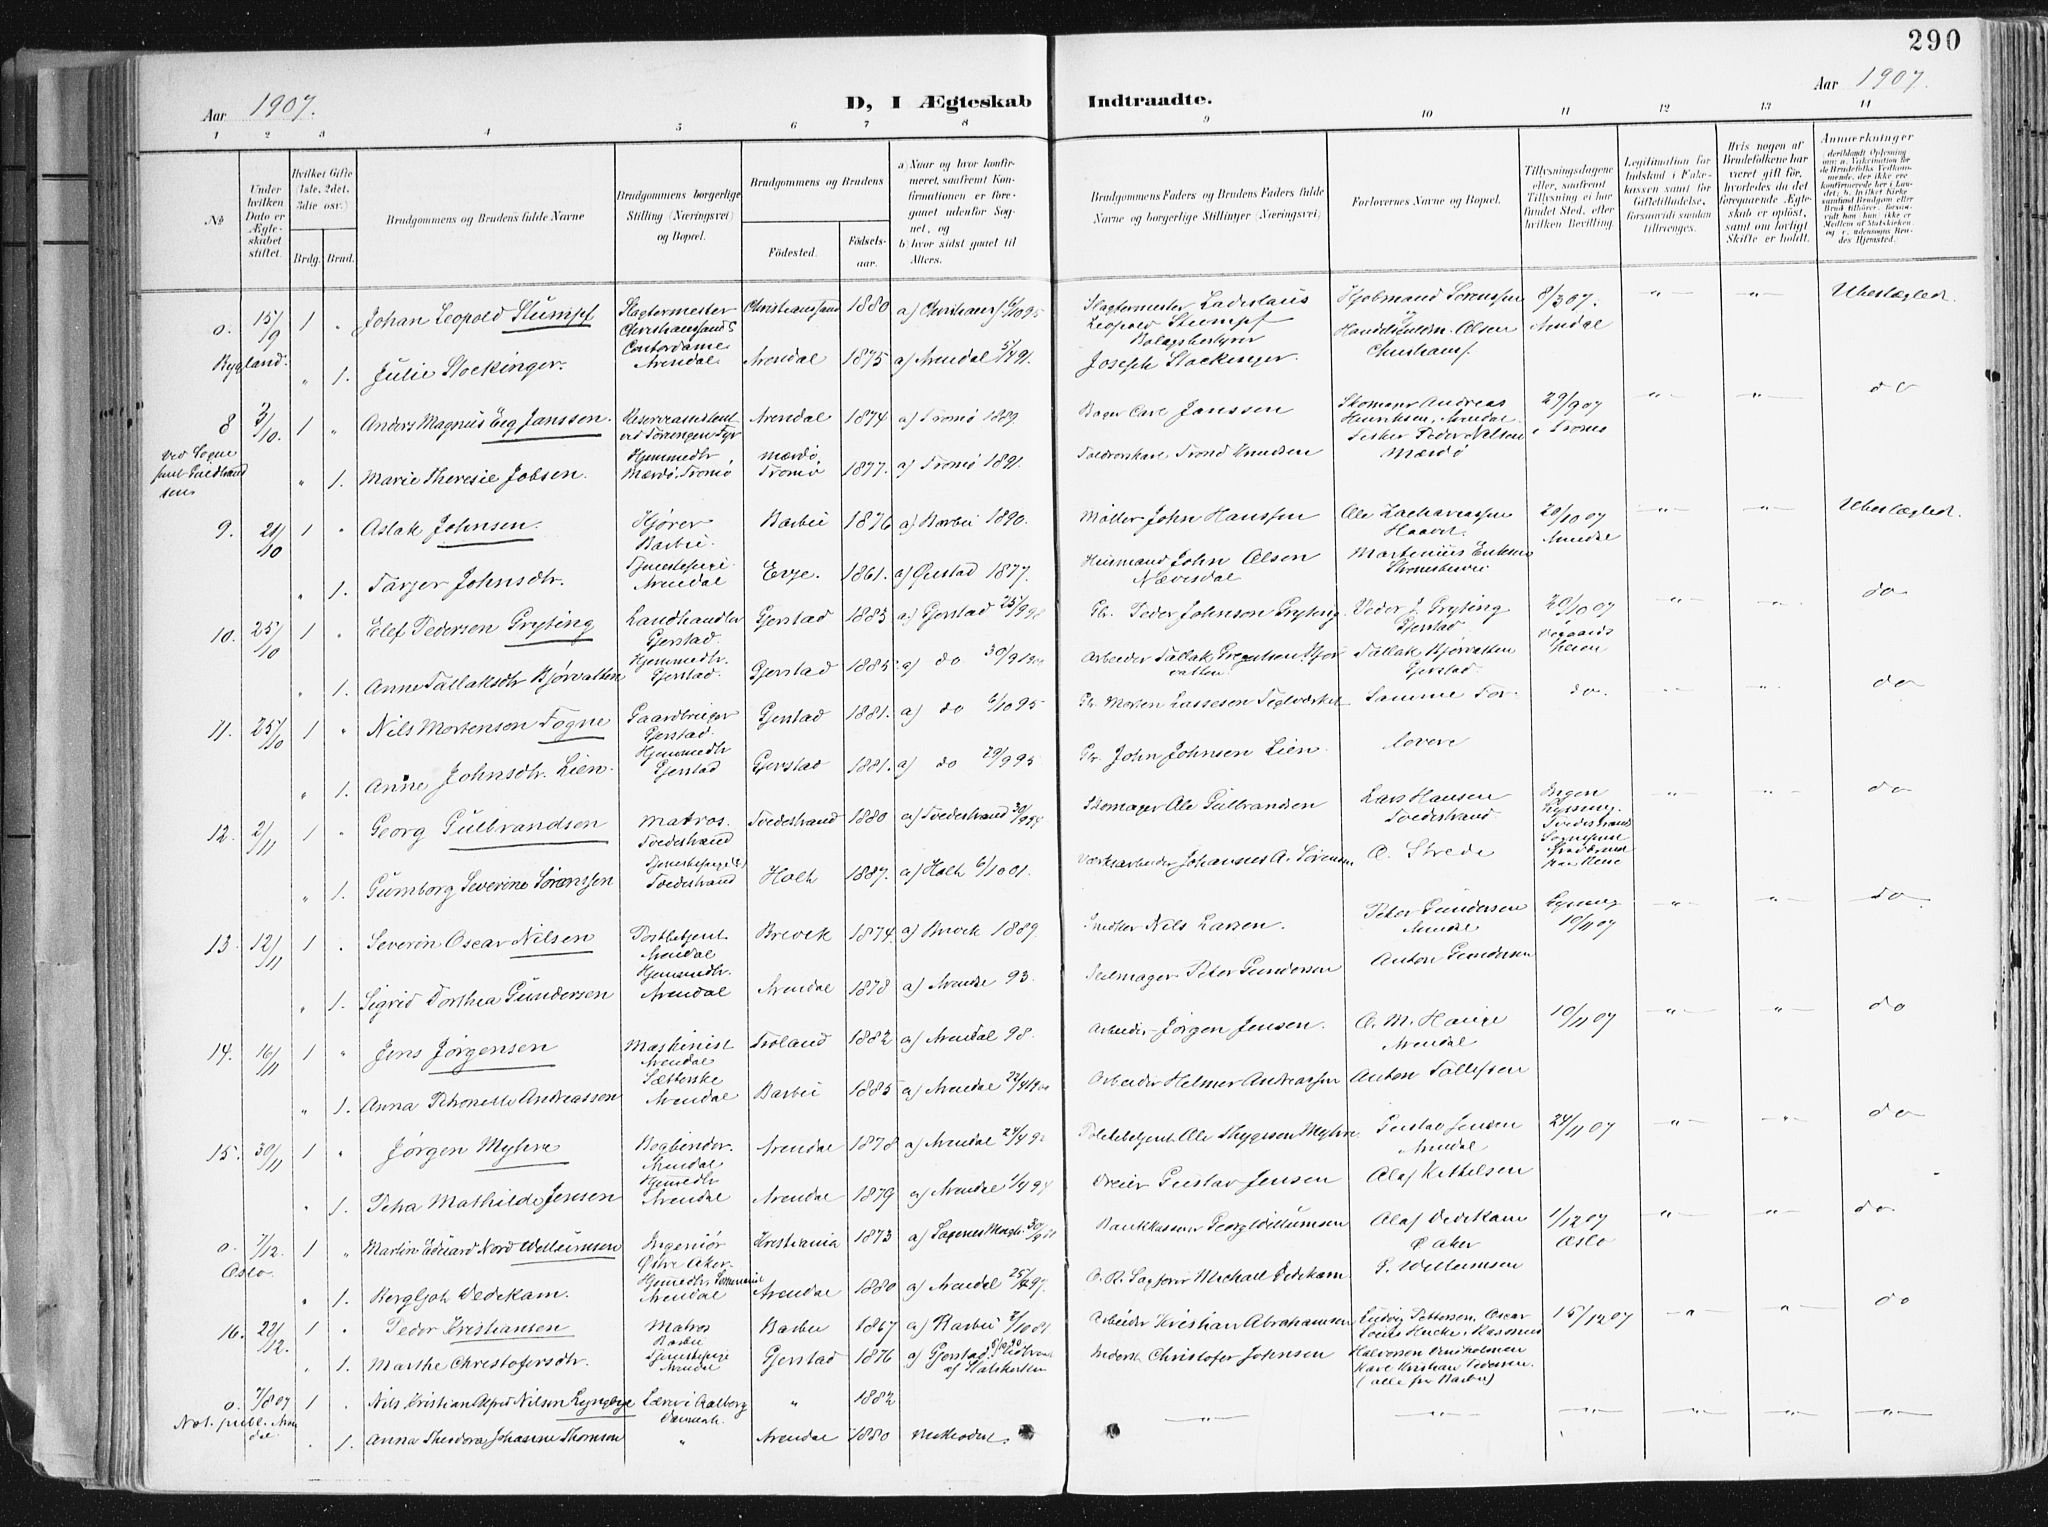 290
Aar 1907.
D, I Ægteskab Indtraadte.
Aar 1907.
1 2 3 4 5 6 7 8 9 10 11 12 13 14
No
Under hvilken Dato er Ægteskabet stiftet.
Hvilket Gifte (1ste, 2det, 3die osv.)
Brdg. Brud.
Brudgommens og Brudens fulde Navne
Brudgommens borgerlige Stilling (Næringsvei) og Bopæl.
Brudgommens og Brudens
Fødested. Fødselsaar.
a) Naar og hvor konfirmeret, saafremt Konfirmationen er foregaaet udenfor Sognet, og
b) hvor sidst gaaet til Alters.
Brudgommens Faders og Brudens Faders fulde Navne og borgerlige Stillinger (Næringsvei)
Forlovernes Navne og Bopæl.
Tillysningsdagene eller, saafremt Tillysning ei har fundet Sted, efter hvilken Bevilling.
Legitimation for Indskud i Enkekassen samt for Giftetilladelse, forsaavidt saadan tiltrænges.
Hvis nogen af Brudefolkene har været gift før, hvorledes da det foregaaende Ægteskab er opløst, samt om lovligt Skifte er holdt.
Anmerkninger
o. 15/9 1 " Johan Leopold Stumpf Slagtermester Christianssand Christianssand 1880 a) Christians 6/10 95 Slagtermester Ladislaus Leopold Stumpf Hjelmand Sørenssen 8/3 07. Arendal "— "— Ubeslægted.
Rygland. " 1. Julie Stockinger. Contordame Arendal Arendal 1875 a) Arendal 5/4 91. Bolagsbestyrer Joseph Stockinger. Olsen
8 3/10. 1 " Anders Magnus Eeg Janssen. Arendal 1874 a) Tromø 1889. Bager Carl Janssen Skomager Andreas Henriksen, Arendal 29/9 07 i Tromø "— "— do
" 1. Marie Theresie Jobsen. Hjemmedtr. Mærdø, Tromø Mærdø, Tromø 1877. a) Tromø 1891. Trond Knudsen Fisker Peder Nilsen Mærdø
9. 21/10 1 " Aslak Johnsen. Kjører Barbu. Barbu 1876 a) Barbu 1890. Møller John Hanssen Ole Zachariassen 20/10 07 Arendal "— "— Ubeslægted.
" 1. Tarjer Johnsdtr. Tjenestepige Arendal Evje. 1861. a) 1877. Husmand John Olsen Martenius Eriksen
10. 25/10 1 " Elef Pedersen Gryting Landhandler Gjerstad. Gjerstad 1883 a) Gjerstad 25/9 98 Gbr. Peder Johnsen Gryting Peder J. Gryting Gjerstad. 20/10 07 "— "— do
" 1. Anne Tallaksdtr Bjørvatten Hjemmedtr. Gjerstad. Gjerstad 1885 a) do 30/9 1900 Arbeider Tallak Tallak Bjørvatten Gjerstad.
11. 25/10 1 " Nils Mortensen Fogne Gaardbruger Gjerstad Gjerstad 1881. a) do 6/10 95 Gbr. Morten Lassesen Samme For- do. "— "— do
" 1. Anne Johnsdtr. Lien. Hjemmedtr Gjerstad Gjerstad 1881. a) do 29/9 95 Gbr. John Johnsen Lien. lovere
12. 2/11 1 " Georg Gulbrandsen Matros. Tvedestrand Tvedestrand 1880 a) Tvedestrand 30/9 94 Skomager Ole Gulbrandsen Lars Hansen Tvedestrand Ingen Lysning. "— "— do
" 1. Gumborg Severine Sørenssen Tjenestepige Tvedestrand Holt 1887. a) Holt 6/10 01. Johannes A. Sørensen
13. 12/11 1 " Severin Oscar Nilsen Postbetjent Arendal Brevik 1874. a) Brevik 1889. Snedker Nils Larsen. Peter Gundersen Arendal Lysning 10/11 07 "— "— do.
" 1. Sigrid Torthea Gundersen Hjemmedtr. Arendal Arendal 1878 a) Arendal 93. Seilmager Peter Gundersen Anton Gundersen
14. 16/11 1 " Jens Jørgensen Maskinist Arendal Froland 1882 a) Arendal 98. Arbeider Jørgen Jensen. O. M. Hauge Arendal 10/11 07 "— "— do
" 1. Anna Andreassen Sætterske Arendal Barbu 1885 a) Arendal Arbeider Helmer Andreassen Anton Tallefsen
15. 30/11 1 " Jørgen Myhre Bogbinder. Arendal Arendal 1878 a) Arendal Politibetjent Ole Thygesen Myhre Gustav Jensen Arendal 24/11 07 "— "— do
" 1. Petra Mathilde Jensen Hjemmedtr Arendal Arendal 1879 a) Arendal Dreier Gustav Jensen Olaf Kittelsen
o. 7/12. Oslo 1 " Martin Edvard Nord Willumsen Ingeniør Østre Aker. Kristiania 1873 Bankkasserer Georg Willumsen Olaf Dedekam Ø. Aker 1/12 07 Oslo "— "— do
" 1. Bergljot Dedekam. Hjemmedtr. Arendal Arendal 1880 a) Arendal O. R. Sagfører Michael Dedekam G. Willumsen
16. 22/12. 1 " Peder Kristiansen Matros Barbu Barbu 1867 a) Barbu 2/10 81 Arbeider Kristian Abrahamsen Ludvig Pettersen, Oscar 15/12 07 "— "— do
" 1. Marthe Christofersdtr. Tjenestepige Arendal Gjerstad 1876 a) Gjerstad Christofer Johnsen Karl Kristian Pedersen. (alle fra Barbu)
o. 7/8 07 1 " Nils Kristian Alfred Nilsen Lyngbye Aalborg Danmark " 1882
Not. publ. Arendal. " 1. Anna Theodora Johanne Thomsen " Arendal 1880 Methodist. "— "— "— "— "— "—